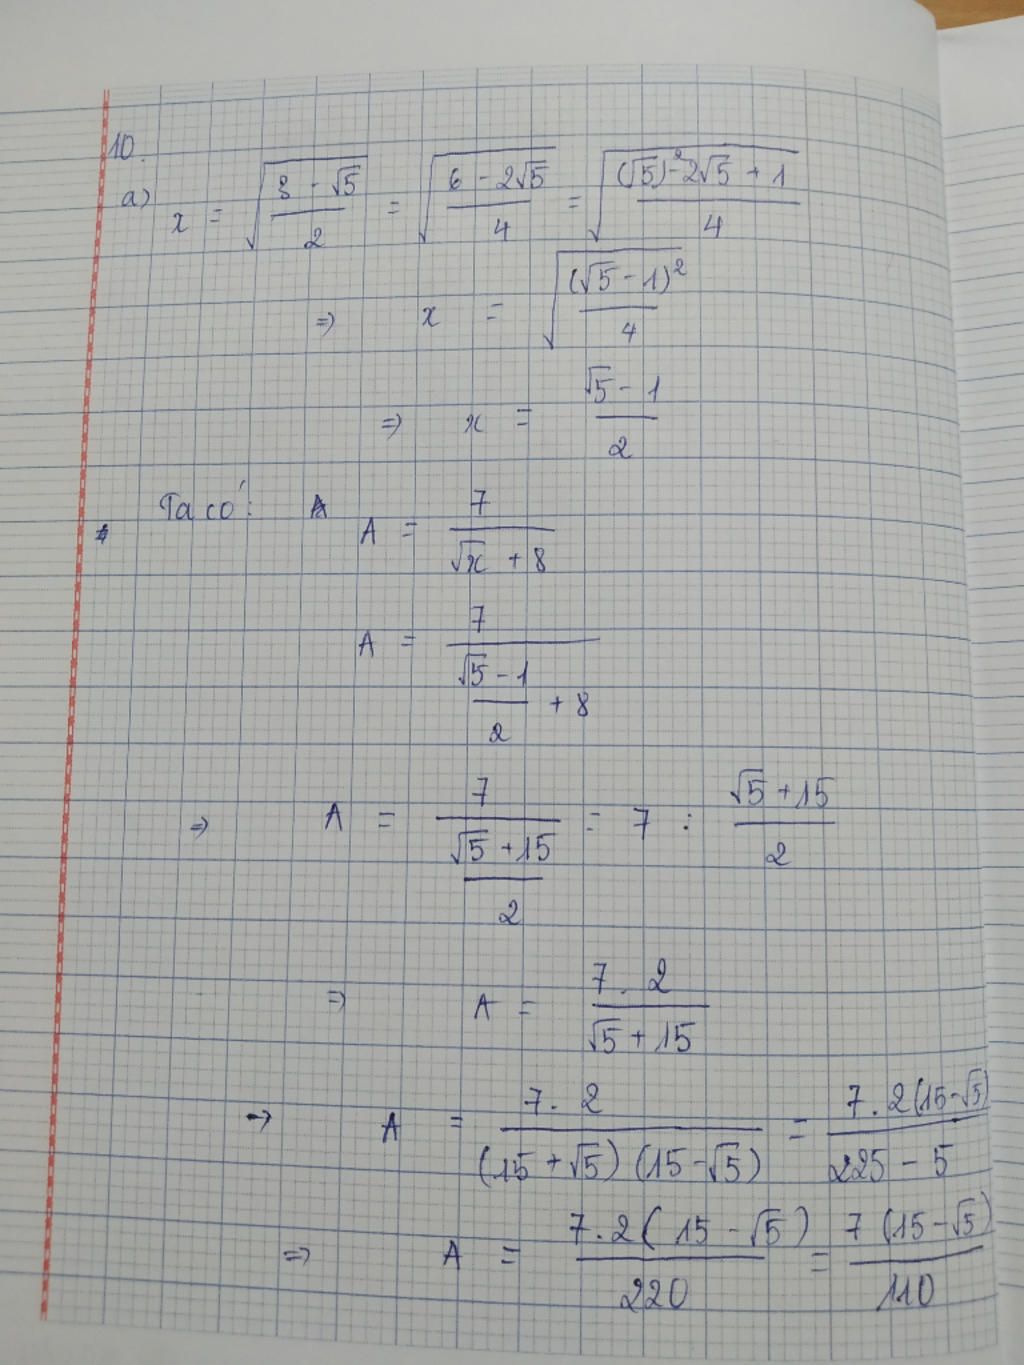 10.
a) x = √((3 - √5)/2) = √((6 - 2√5)/4) = √(((√5)² - 2√5 + 1)/4)
=> x = √((√5 - 1)²/4)
=> x = (√5 - 1)/2
Ta có: A = 7/(√x + 8)
A = 7/((√5 - 1)/2 + 8)
=> A = 7/((√5 + 15)/2) = 7 : (√5 + 15)/2
=> A = (7 . 2)/(√5 + 15)
=> A = (7 . 2)/((15 + √5)(15 - √5)) = (7 . 2(15 - √5))/(225 - 5)
=> A = (7 . 2(15 - √5))/220 = (7(15 - √5))/110